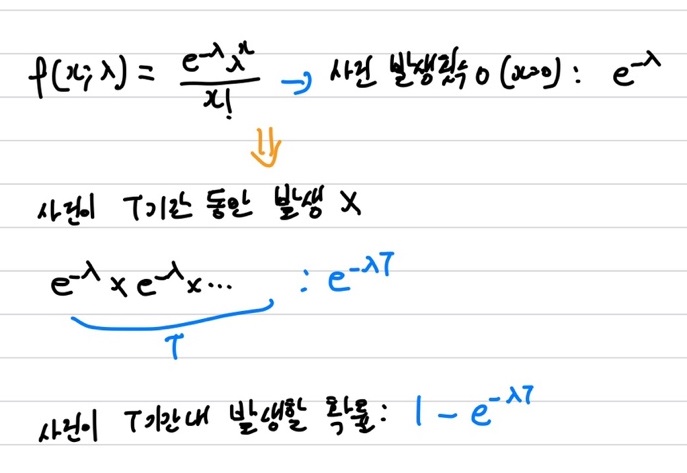 f(x;λ) = e^-λ λ^x / x! → 사건 발생횟수 0 (x=0) : e^-λ
⇓
사건이 T기간 동안 발생 X
e^-λ × e^-λ × ... : e^-λT
T
사건이 T기간내 발생할 확률: 1 - e^-λT